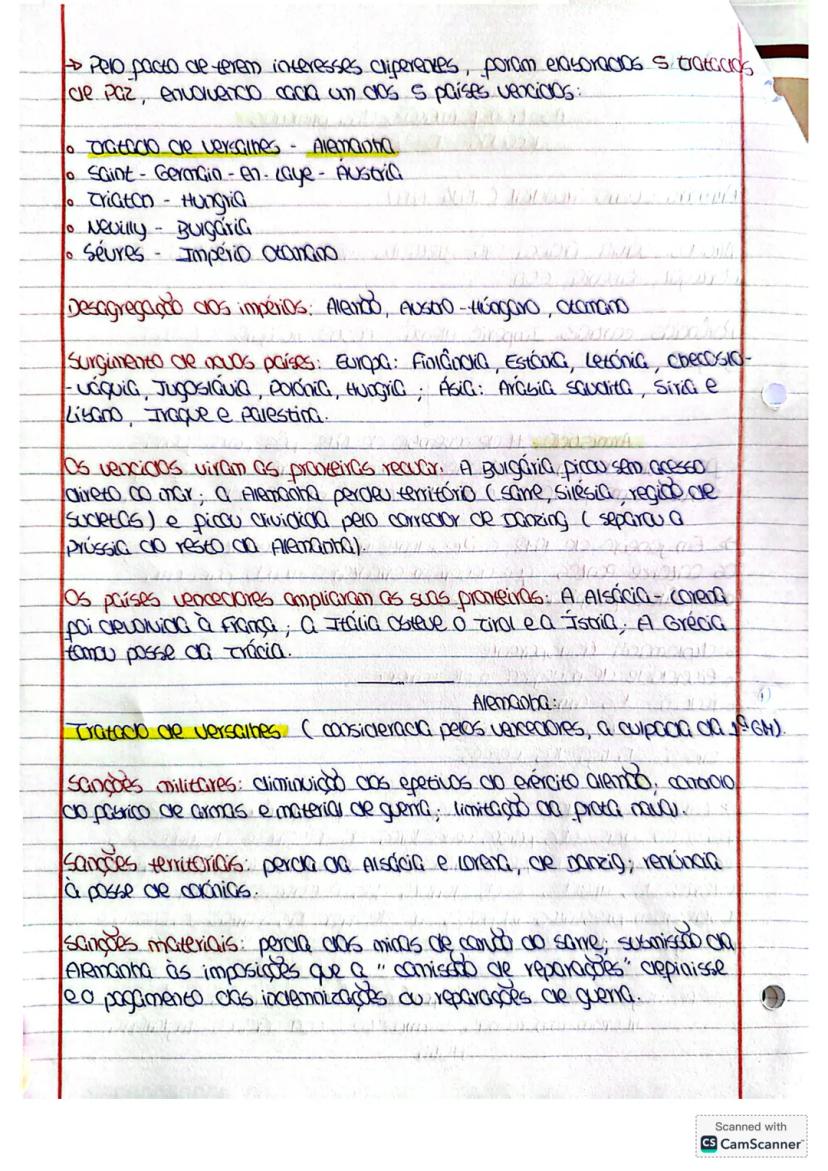 → Pelo facto de terem interesses diferentes, foram elaborados 5 tratados
de Paz, envolvendo cada um dos 5 países vencidos:
o Tratado de Versalhes - Alemanha
o Saint - Germain - en - Laye - Áustria
o Trianon - Hungria
o Neuilly - Bulgária
o Sèvres - Império Otomano
Desagregação dos impérios: Alemão, Austro-Húngaro, Otomano
Surgimento de novos países: Europa: Finlândia, Estónia, Letónia, Checoslo-
-váquia, Jugoslávia, Polónia, Hungria; Ásia: Arábia Saudita, Síria e
Líbano, Iraque e Palestina.
Os vencidos viram as fronteiras recuar. A Bulgária ficou sem acesso
direto ao mar; a Alemanha perdeu território (Sarre, Silésia, região de
Sudetas) e ficou dividida pelo corredor de Danzing (separou a
Prússia do resto da Alemanha).
Os países vencedores ampliaram as suas fronteiras: A Alsácia-Lorena
foi devolvida à França; a Itália obteve o Tirol e a Ístria; A Grécia
tomou posse da Trácia.
Alemanha:
Tratado de Versalhes (considerada pelos vencedores, a culpada da 1ª GM).
Sanções militares: diminuição dos efetivos do exército alemão; controlo
do fabrico de armas e material de guerra; limitação da frota naval.
Sanções territoriais: perda da Alsácia e Lorena, de Danzig; renúncia
à posse de colónias.
Sanções materiais: perda das minas de carvão do Sarre; submissão da
Alemanha às imposições que a "comissão de reparações" definisse
e o pagamento das indemnizações ou reparações de guerra.
Scanned with
CS CamScanner